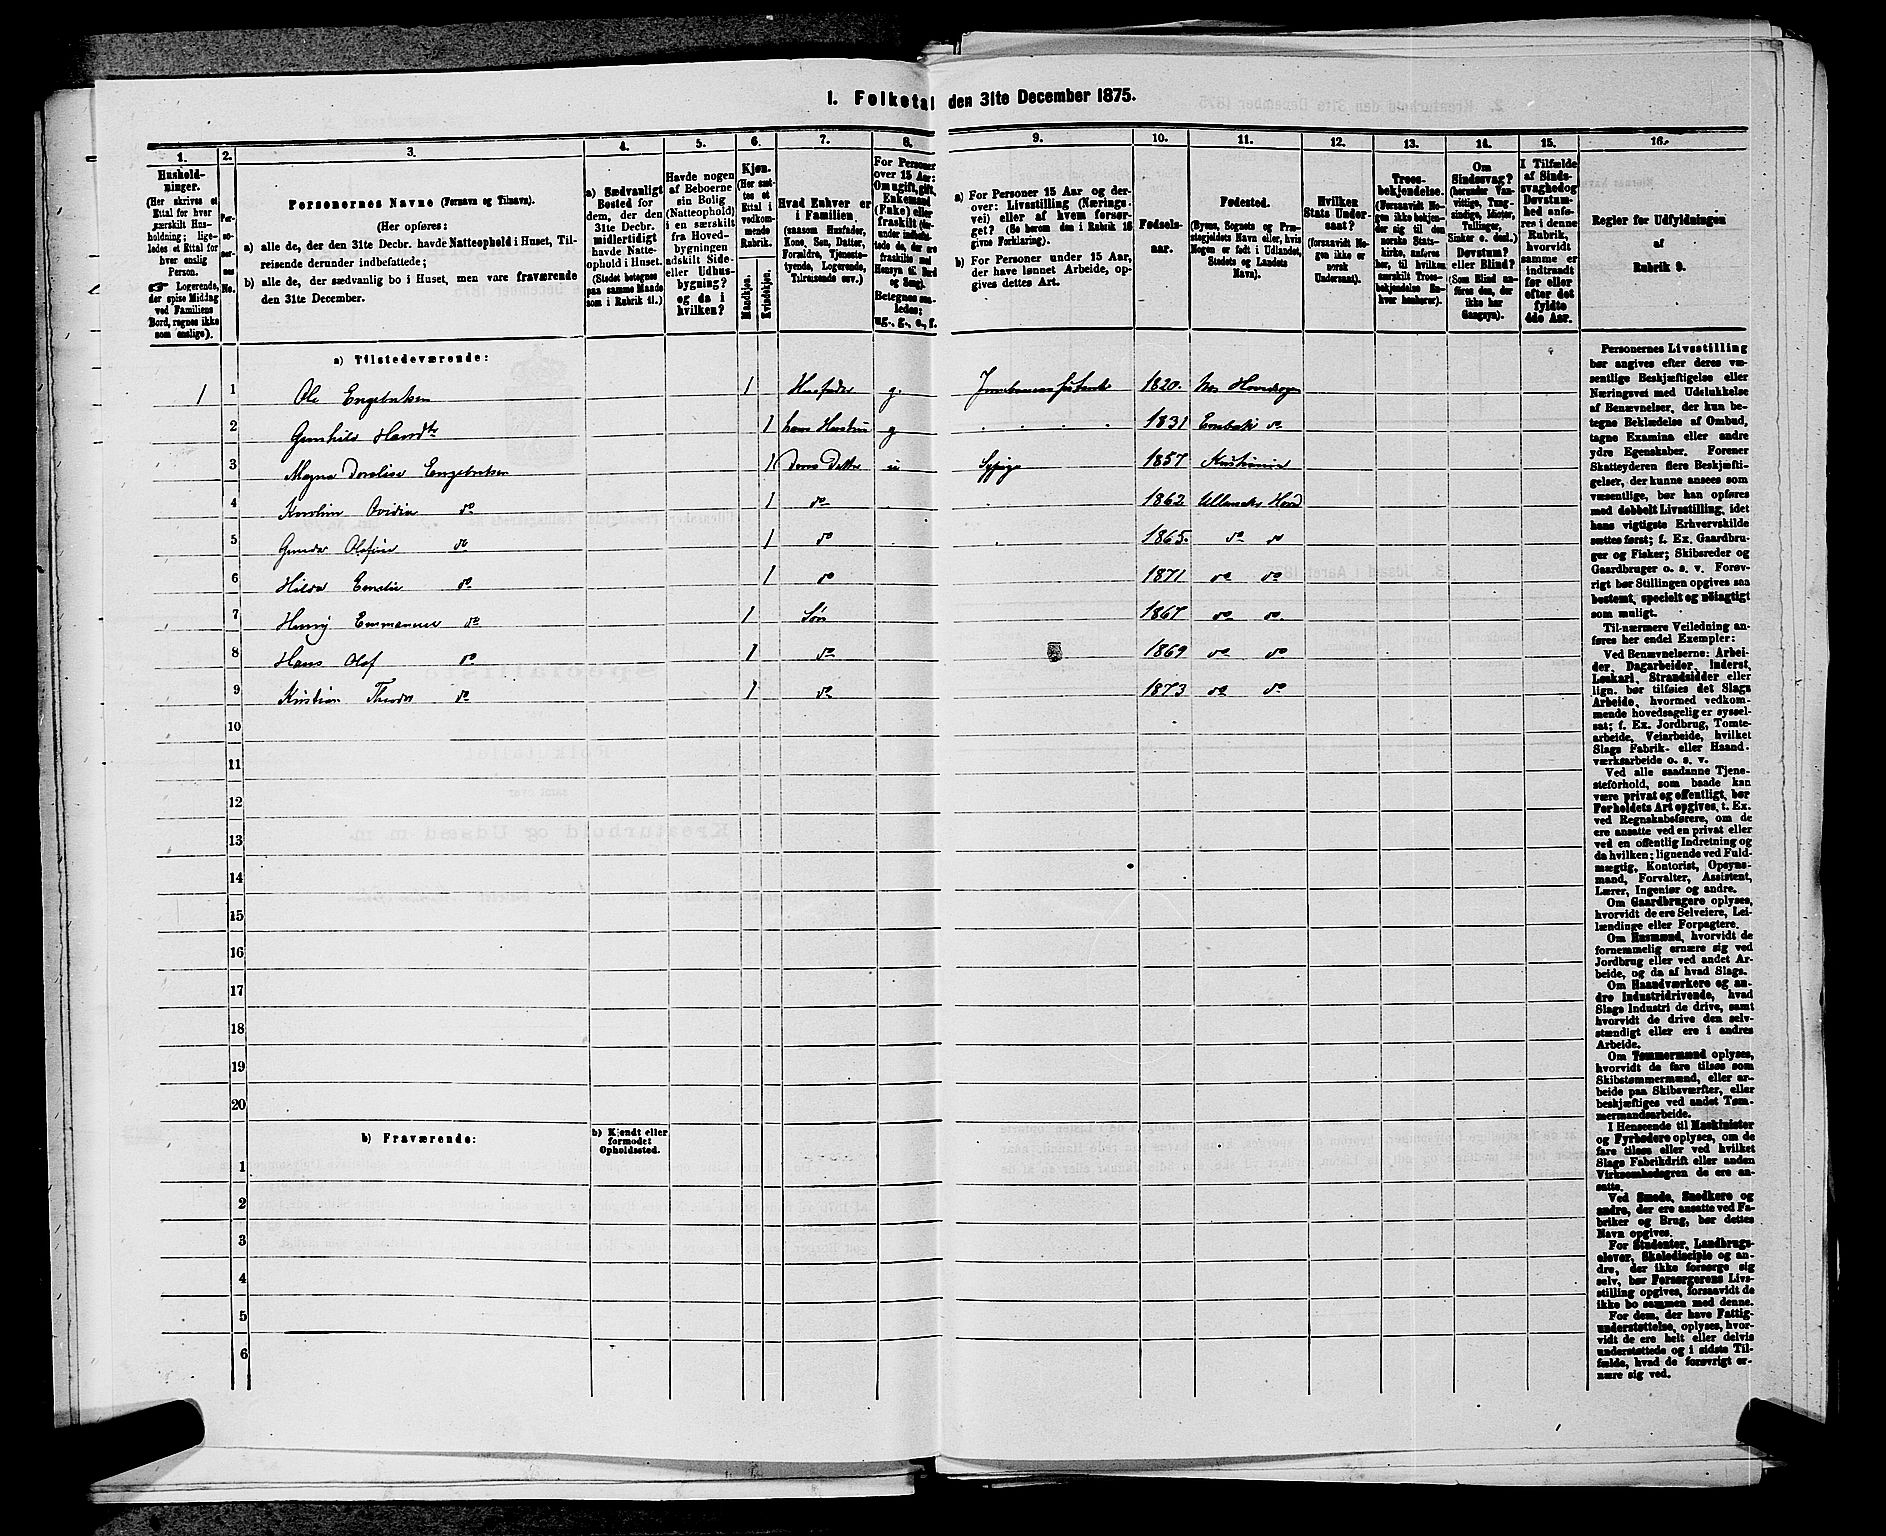 1. Folketal den 31te December 1875.
1.
Hushold-
ninger.
(Her skrives et
Ettal for hver
særskilt Hus-
holdning; lige-
ledes et Ettal for
hver enslig
Person.
☛ Logerende,
der spise Middag
ved Familiens
Bord, regnes ikke
som enslige).
2.
Per-
so-
ner-
nes
No.
3.
Personernes Navne (Fornavn og Tilnavn).
(Her opføres:
a) alle de, der den 31te Decbr. havde Natteophold i Huset, Til-
reisende derunder indbefattede;
b) alle de, der sædvanlig bo i Huset, men vare fraværende
den 31te December.
4.
a) Sædvanligt
Bosted for
dem, der den
31te Decbr.
midlertidigt
havde Natte-
ophold i Huset.
(Stedet betegnes
paa samme Maade
som i Rubrik 11.)
5.
Havde nogen
af Beboerne
sin Bolig
(Natteophold)
i en særskilt
fra Hoved-
bygningen
adskilt Side-
eller Udhus-
bygning?
og da i
hvilken?
6.
Kjøn.
(Her sæt-
tes et
Ettal i
vedkom-
mende
Rubrik.
Mandkjøn.
Kvindekjøn.
7.
Hvad Enhver er
i Familien
(saasom Husfader,
Kone, Søn, Datter,
Forældre, Tjeneste-
tyende, Logerende,
Tilreisende osv.)
8.
For Personer
over 15 Aar:
Om ugift, gift,
Enkemand
(Enke) eller
fraskilt
Betegnes saa-
ledes:
ug., g., e., f.
9.
a) For Personer 15 Aar og der-
over: Livsstilling (Nærings-
vei) eller af hvem forsør-
get? (Se herom den i Rubrik 16
givne Forklaring).
b) For Personer under 15 Aar,
der have lønnet Arbeide, op-
gives dettes Art.
10.
Fødsels-
aar.
11.
Fødested.
(Byens, Sognets og Præ-
stegjeldets Navn eller, hvis
Nogen er født i Udlandet,
Stedets og Landets
Navn).
12.
Hvilken
Stats Under-
saat?
(forsaavidt No-
gen ikke er
norsk
Undersaat).
13.
Troes-
bekjendelse.
(Forsaavidt No-
gen ikke bekjen-
der sig til den
norske Stats-
kirke, anføres
her, til hvilken
særskilt Troes-
bekjendelse En-
hver henhører).
14.
Om
Sindssvag?
(herunder Van-
vittige, Tung-
sindige, Idioter,
Tullinger,
Sinker o. desl.)
Døvstum?
eller Blind?
(Som Blind an-
føres den, der
ikke har
Gangsyn).
15.
I Tilfælde
af Sinds-
svaghed og
Døvstum-
hed anfø-
res i denne
Rubrik,
hvorvidt
samme er
indtraadt
før eller
efter det
fyldte
4de Aar.
16.
Regler for Udfyldningen
af
Rubrik 9.
a) Tilstedeværende:
1 1 Ole Engebretsen 1 Husfader g. 1820.
2 Gunhild Hansdtr 1 hans Hustru g 1831 Enebak do
3 Magna Doralise Engebretsen 1 deres Datter u Sypige 1857 Kristiania
4 Karoline Ovidia do 1 do 1862
5 Gunda Olefine do 1 do 1865. do do
6 Hilda Emelie do 1 do 1871 do do
7 Henry Emmanuel do 1 Søn 1867 do do.
8 Hans Olaf do 1 do 1869 do do
9 Kristian Theodor do 1 do 1873 do do
10
11
12
13
14
15
16
17
18
19
20
b) Fraværende:
b) Kjendt eller
formodet
Opholdssted.
1
2
3
4
5
6
Personernes Livsstilling
bør angives efter deres væ-
sentlige Beskjæftigelse eller
Næringsvei med Udelukkelse
af Benævnelser, der kun be-
tegne Beklædelse af Ombud,
tagne Examina eller andre
ydre Egenskaber. Forener
Skatteyderen flere Beskjæfti-
gelser, der kunne ansees som
væsentlige, bør han opføres
med dobbelt Livsstilling, idet
hans vigtigste Erhvervskilde
sættes først; f. Ex. Gaardbru-
ger og Fisker; Skibsreder og
Gaardbruger o. s. v. Forøv-
rigt bør Stillingen opgives saa
bestemt, specielt og nøiagtigt
som muligt.
Til nærmere Veiledning an-
føres her endel Exempler:
Ved Benævnelserne: Arbei-
der, Dagarbeider, Inderst,
Løskarl, Strandsidder eller
lign. bør tilføies det Slags
Arbeide, hvormed vedkom-
mende hovedsagelig er syssel-
sat; f. Ex. Jordbrug, Tomte-
arbeide, Veiarbeide, hvilket
Slags Fabrik- eller Haand-
værksarbeide o. s. v.
Ved alle saadanne Tjene-
steforhold, som baade kan
være privat og offentligt, bør
Forholdets Art opgives, t. Ex.
ved Regnskabsførere, om de
ere ansatte ved en privat eller
ved en offentlig Indretning og
da hvilken; lignende ved Fuld-
mægtig, Kontorist, Opsyns-
mand, Forvalter, Assistent,
Lærer, Ingeniør og andre.
Om Gaardbrugere oplyses,
hvorvidt de ere Selveiere, Lei-
lændinge eller Forpagtere.
Om Husmænd, hvorvidt de
fornemmelig ernære sig ved
Jordbrug eller ved andet Ar-
beide, og da af hvad Slags.
Om Haandværkere og an-
dre Industridrivende, hvad
Slags Industri de drive, samt
hvorvidt de drive den selv-
stændigt eller ere i andres
Arbeide.
Om Tømmermænd oplyses,
hvorvidt de fare tilsøs som
Skibstømmermænd, eller ar-
beide paa Skibsværfter, eller
beskjæftiges ved andet Tøm-
mermandsarbeide.
I Henseende til Maskinister
og Fyrbødere oplyses, om de
fare tilsøs eller ved hvilket
Slags Fabrikdrift eller anden
Virksomhedsgren de ere an-
satte.
Ved Smede, Snedkere og
andre, der ere ansatte ved Fa-
briker og Brug, bør dettes
Navn opgives.
For Studenter, Landbrugs-
elever, Skoledisciple og an-
dre, der ikke forsørge sig
selv, bør Forsørgerens Livs-
stilling opgives, forsaavidt de
ikke bo sammen med denne.
For dem, der have Fattig-
understøttelse, oplyses, hvor-
vidt de ere helt eller delvis
understøttede og i sidste Til-
fælde, hvad de forøvrigt er-
nære sig ved.